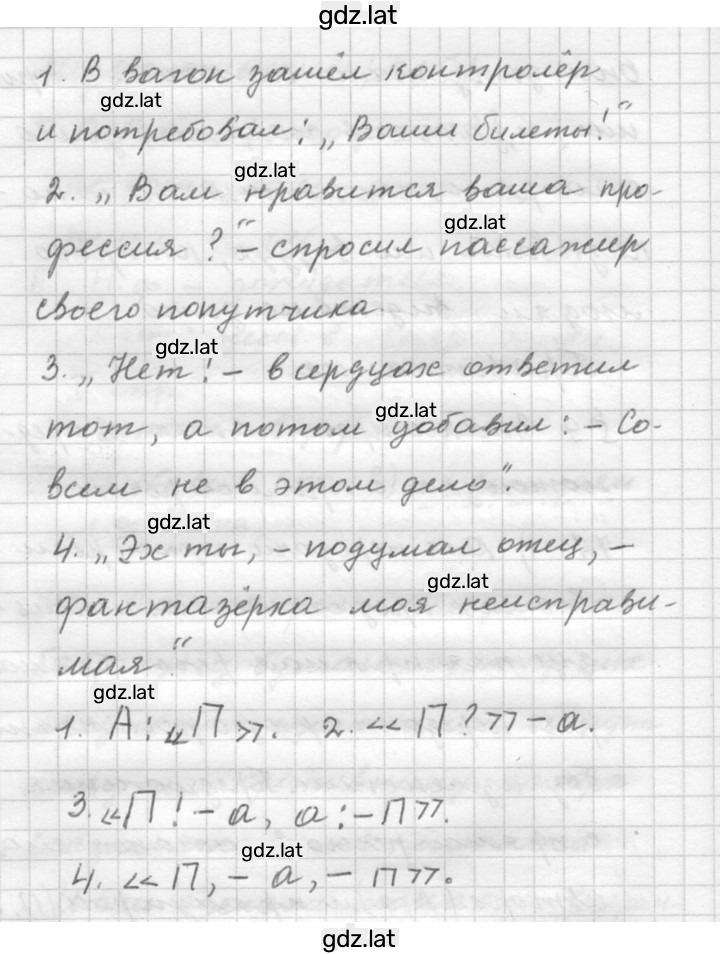 gdz.lat
1. В вагон зашёл контролёр
gdz.lat
и потребовал: „Ваши билеты!“
gdz.lat
2. „Вам нравится ваша про-
gdz.lat
фессия?“ – спросил пассажир
своего попутчика
gdz.lat
3. „Нет! – в сердцах ответил
gdz.lat
тот, а потом добавил: – Со-
всем не в этом дело“.
gdz.lat
4. „Эх ты, – подумал отец, –
gdz.lat
фантазёрка моя неисправи-
мая“
gdz.lat
1. А: «П». 2. «П?» – а.
3. «П! – а, а: – П».
gdz.lat
4. «П, – а, – п».
gdz.lat